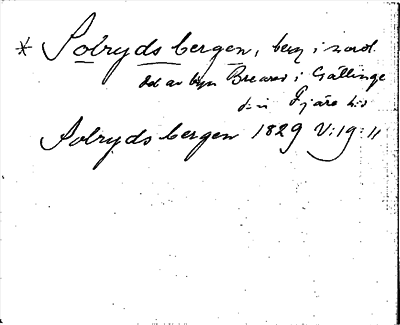 * Solrydsbergen, berg i nord.
del av byn Breared i Gällinge
s:n Fjäre hd
Solrydsbergen 1829 V:19:11